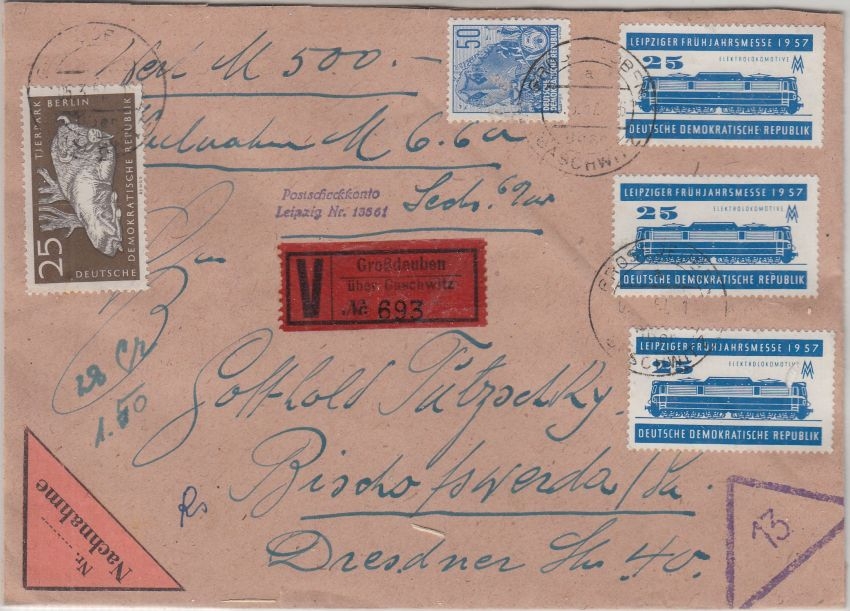 Wert M 500.—
Nachnahme M 6.60
Sechs 60/00
Postscheckkonto
Leipzig Nr. 13561
V
Großdeuben
über Gaschwitz
№ 693
28 Gr
1.50
Gotthold Tützschky.
Bischofswerda/Sa.
Dresdner Str. 40.
Nr.
Nachnahme
13
TIERPARK BERLIN
25
DEUTSCHE DEMOKRATISCHE REPUBLIK
50
DEUTSCHE
DEMOKRATISCHE REPUBLIK
LEIPZIGER FRÜHJAHRSMESSE 1957
25 ELEKTROLOKOMOTIVE
DEUTSCHE DEMOKRATISCHE REPUBLIK
LEIPZIGER FRÜHJAHRSMESSE 1957
25 ELEKTROLOKOMOTIVE
DEUTSCHE DEMOKRATISCHE REPUBLIK
LEIPZIGER FRÜHJAHRSMESSE 1957
25 ELEKTROLOKOMOTIVE
DEUTSCHE DEMOKRATISCHE REPUBLIK